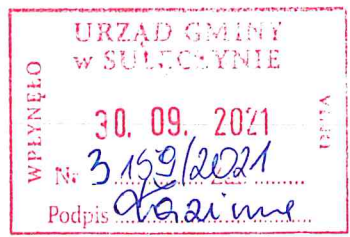 URZĄD GMINY
w SULĘCZYNIE
WPŁYNĘŁO
30. 09. 2021
DNIA
Nr 3159/2021
Podpis